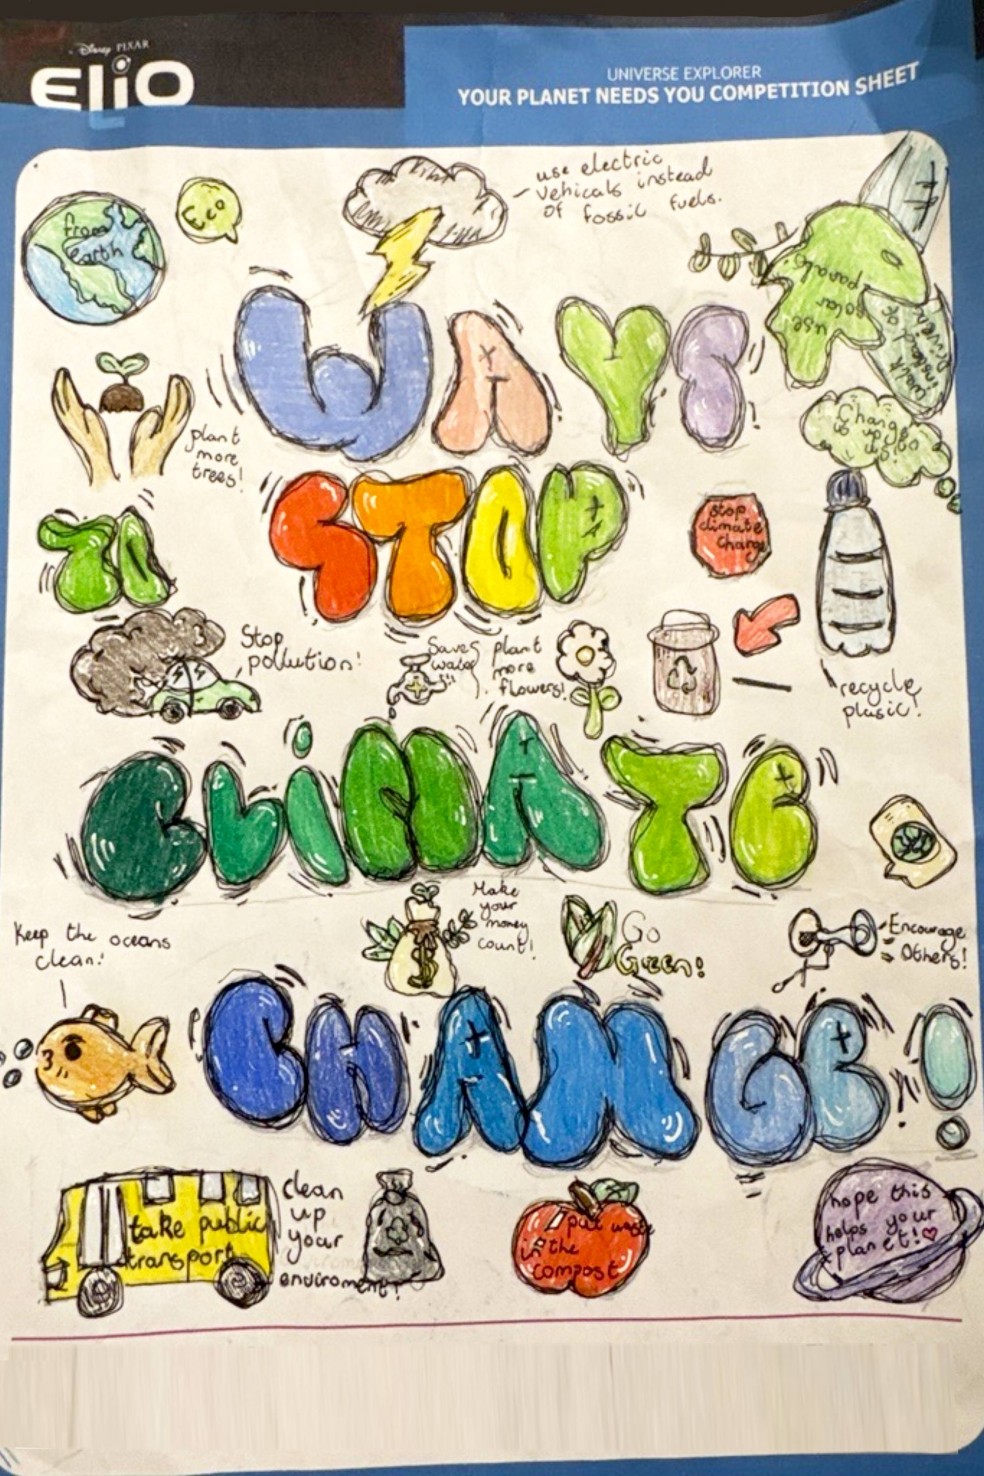 Disney PIXAR
ELiO
UNIVERSE EXPLORER
YOUR PLANET NEEDS YOU COMPETITION SHEET
from
earth
Eco
use electric
vehicals instead
of fossil fuels.
use
solar
panals.
Change
is up
to you!
WAYS
plant
more
trees!
TO
STOP
stop
climate
change
Stop
pollution!
Save
water
plant
more
flowers!
recycle
plasic!
CLiMATE
Make
your
money
count!
Go
Green!
Encourage
Others!
Keep the oceans
clean!
CHANGE!
take public
transport
clean
up
your
enviroment!
put waste
in the
compost
hope this
helps your
planet!